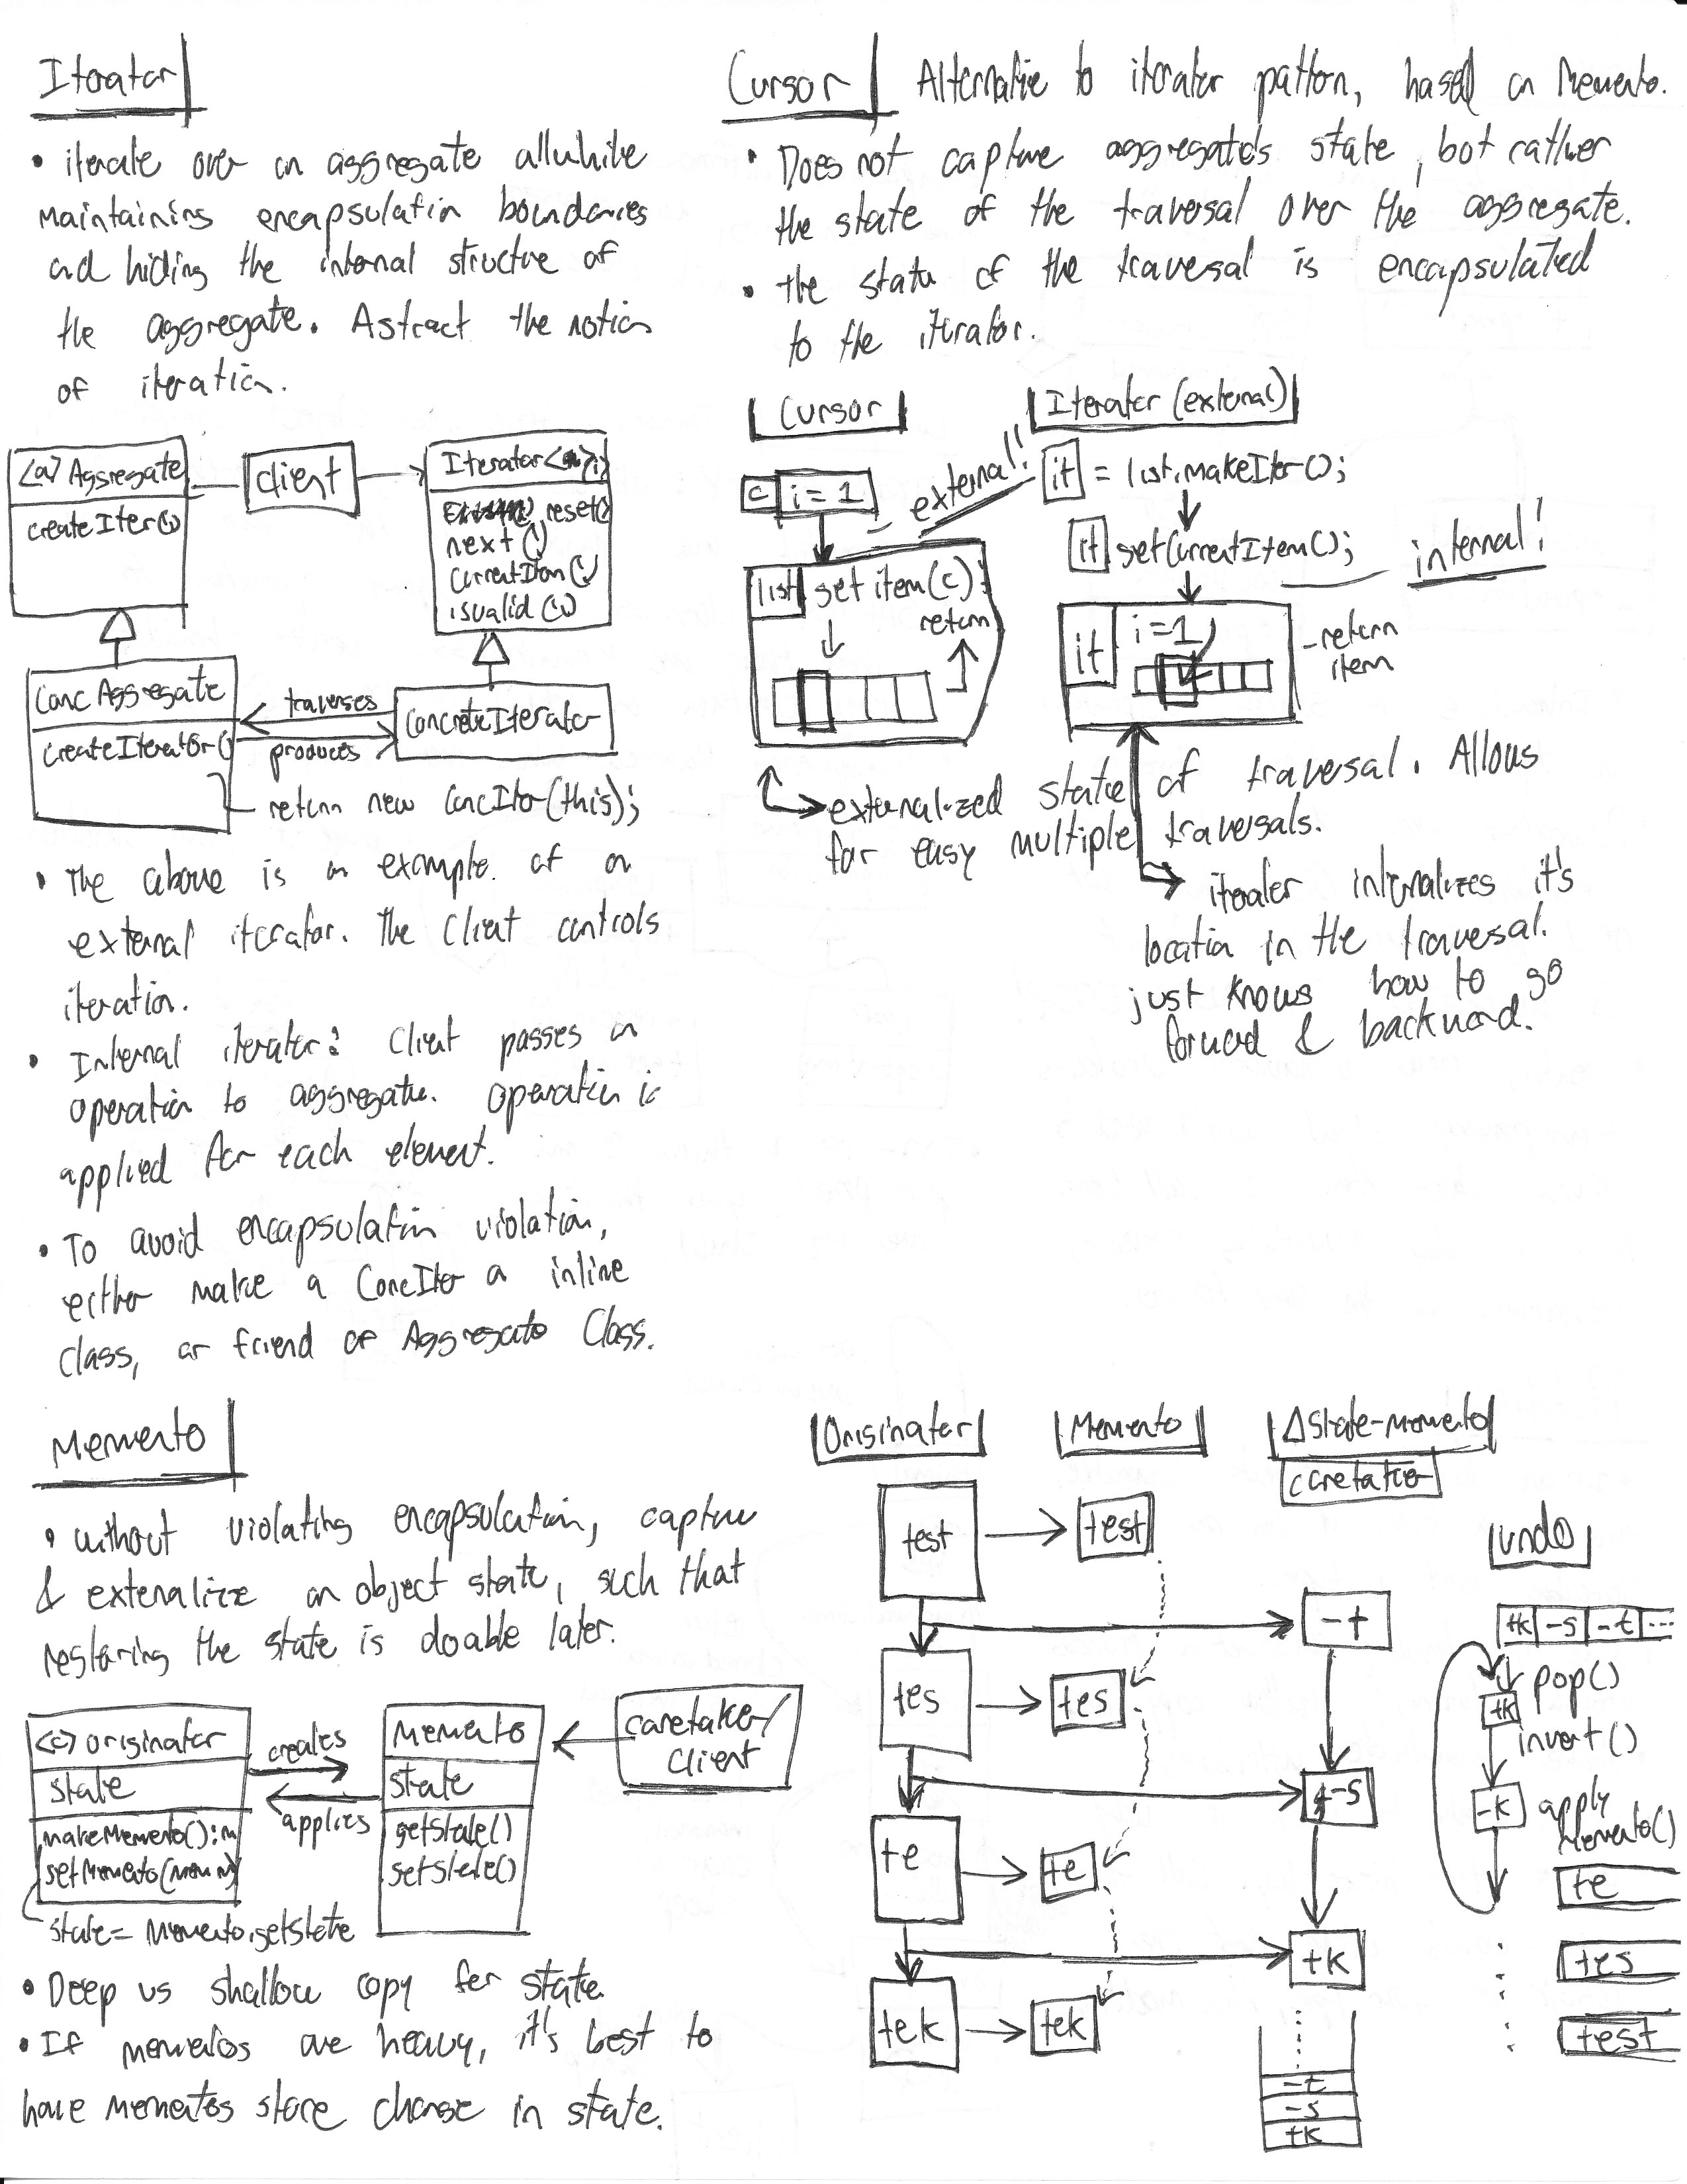 Iterator
• iterate over an aggregate allwhile
maintaining encapsulation boundaries
and hiding the internal structure of
the aggregate. Astract the notion
of iteration.
<a> Aggregate
createIter()
client
Iterator
reset()
next()
currentItem()
isvalid()
Conc Aggregate
createIterator()
traverses
produces
ConcreteIterator
return new ConcIter(this);
• The above is an example of an
external iterator. The Client controls
iteration.
• Internal iterator: Client passes an
operation to aggregate. Operation is
applied for each element.
• To avoid encapsulation violation,
either make a ConcIter a inline
class, or friend of Aggregate Class.
Cursor Alternative to iterator pattern, based on Memento.
• Does not capture aggregate's state, but rather
the state of the traversal over the aggregate.
• the state of the traversal is encapsulated
to the iterator.
Cursor
c i = 1
external!!
list get item(c);
return
Iterator (external)
it = list.makeIter();
it getCurrentItem();
internal!
it i=1
-return
item
externalized state of traversal. Allows
for easy multiple traversals.
iterater internalizes it's
location in the traversal.
just knows how to go
forward & backward.
Memento
• without violating encapsulation, capture
& externalize an object state, such that
restoring the state is doable later.
<c> originator
state
makeMemento():m
setMemento(Mem m)
state= Memento.getState
creates
applies
Memento
state
getState()
setState()
caretaker/
Client
• Deep vs shallow copy for state.
• If mementos are heavy, it's best to
have Mementos store change in state.
Originator
Memento
ΔState-Memento
caretaker
test
test
-t
tes
tes
-s
te
te
+k
tek
tek
-t
-s
+k
undo
+k -s -t ...
pop()
+k
invert()
-k
apply
Memento()
te
tes
test